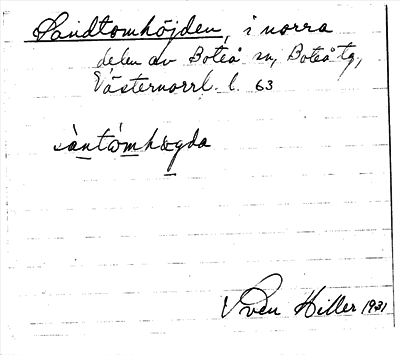 Sandtomhöjden, i norra
delen av Boteå sn, Boteå tg,
Västernorrl. l. 63
sàntòmhøgda
Sven Hiller 1931